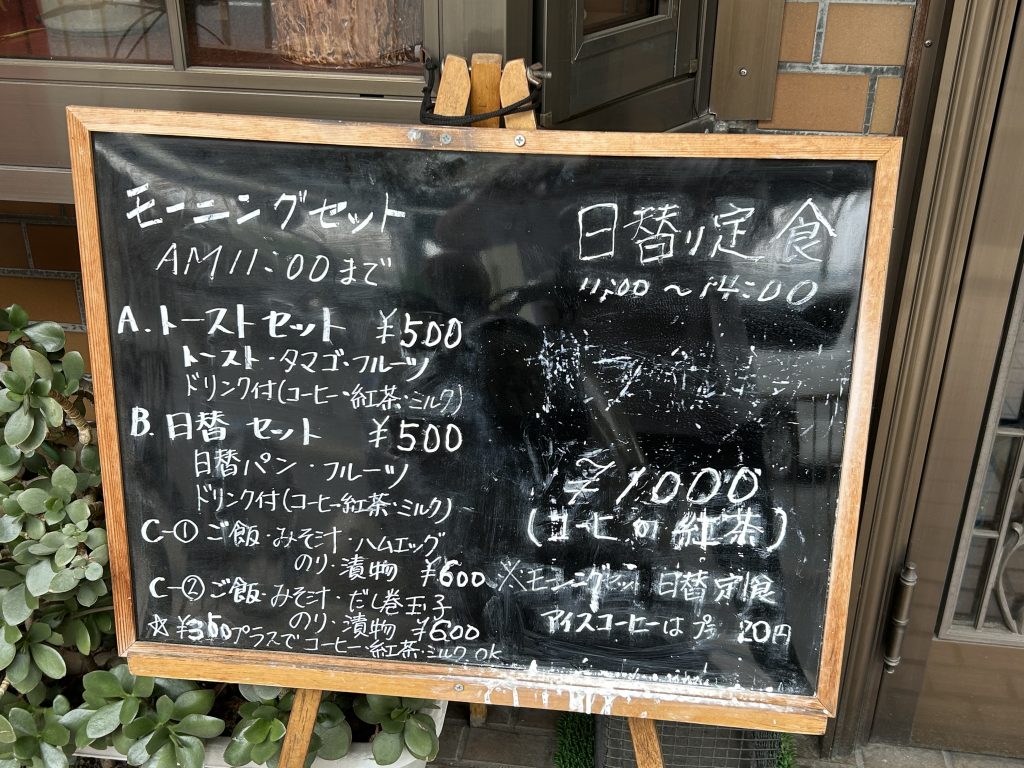 モーニングセット
AM11:00まで
A.トーストセット ¥500
トースト・タマゴ・フルーツ
ドリンク付(コーヒー・紅茶・ミルク)
B.日替セット ¥500
日替パン・フルーツ
ドリンク付(コーヒー紅茶・ミルク)
C-① ご飯・みそ汁・ハムエッグ
のり・漬物 ¥600
C-② ご飯・みそ汁・だし巻玉子
のり・漬物 ¥600
☆¥350プラスでコーヒー・紅茶・ミルクOK
日替り定食
11:00~14:00
¥1,000
(コーヒ 紅茶)
※モーニングセット 日替定食
アイスコーヒーは 20円